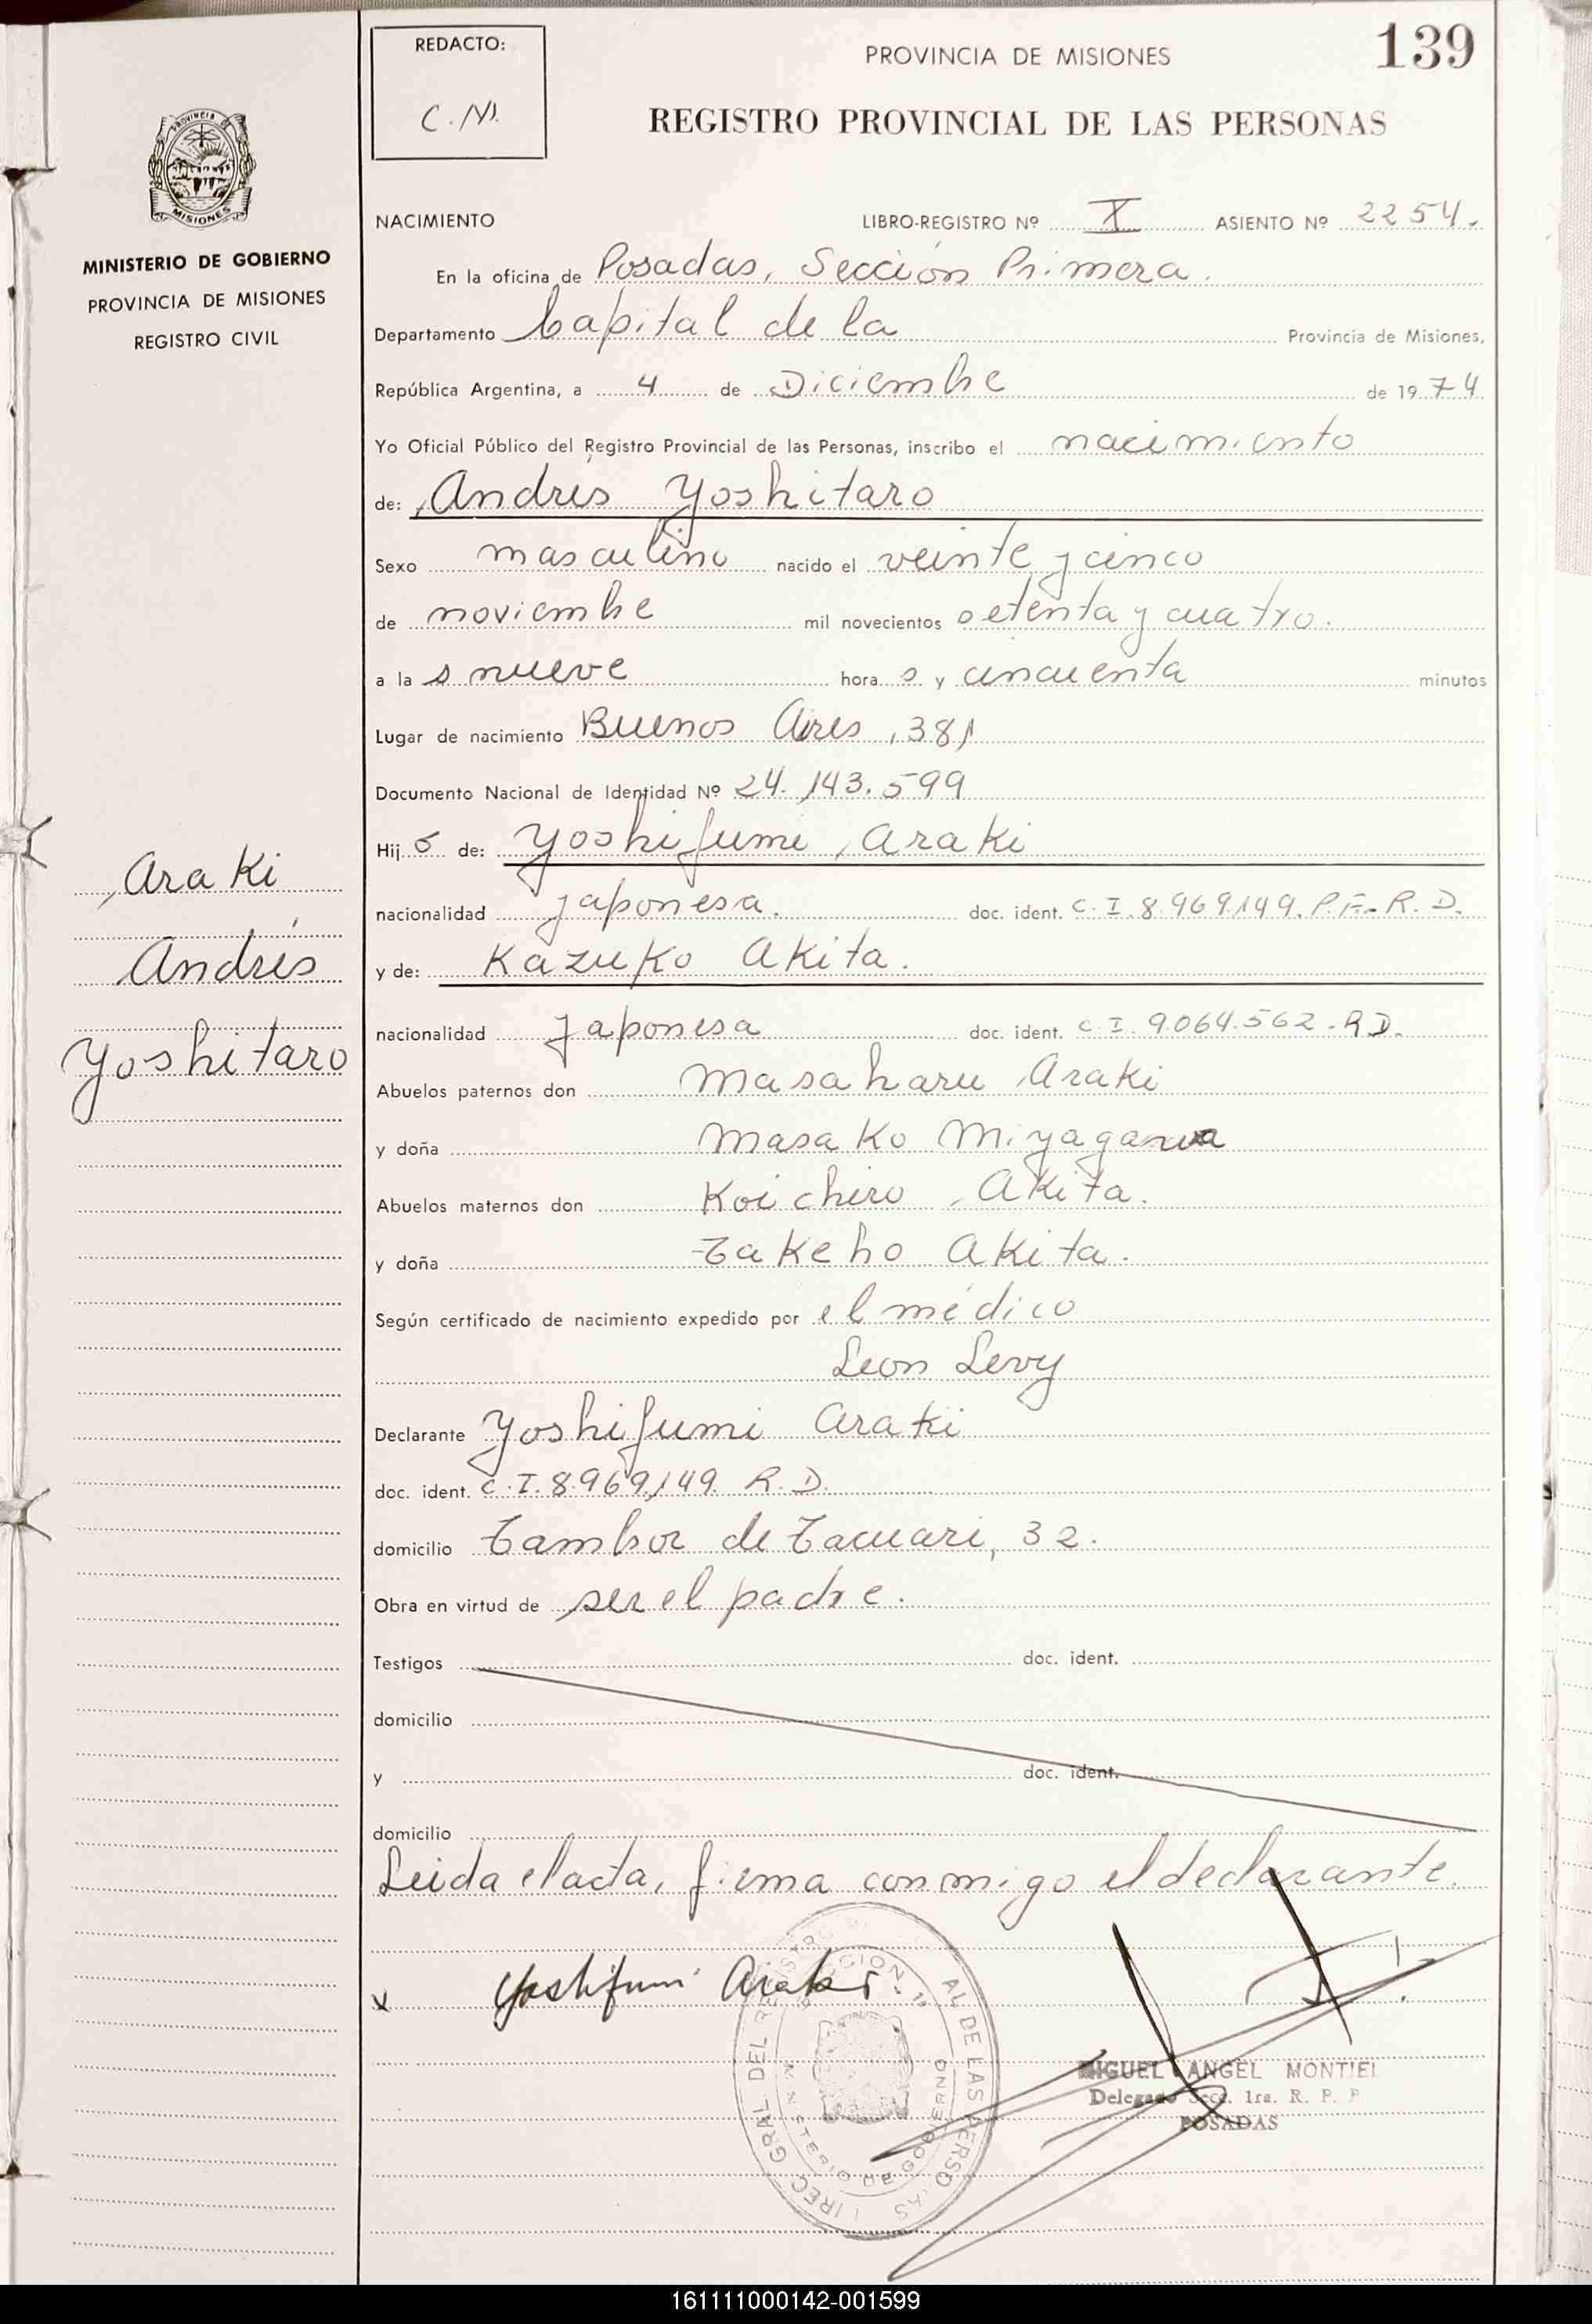 REDACTO:
C. N.
PROVINCIA DE MISIONES
139
REGISTRO PROVINCIAL DE LAS PERSONAS
MISIONES
MINISTERIO DE GOBIERNO
PROVINCIA DE MISIONES
REGISTRO CIVIL
NACIMIENTO LIBRO-REGISTRO Nº X ASIENTO Nº 2254.
En la oficina de Posadas, Sección Primera.
Departamento Capital de la Provincia de Misiones,
República Argentina, a 4 de Diciembre de 1974
Yo Oficial Público del Registro Provincial de las Personas, inscribo el nacimiento
de: Andrés Yoshitaro
Sexo masculino nacido el veinte y cinco
de noviembre mil novecientos setenta y cuatro.
a las nueve horas y cincuenta minutos
Lugar de nacimiento Buenos Aires, 381
Documento Nacional de Identidad Nº 24.143.599
Hijo de: Yoshifumi Araki
nacionalidad Japonesa. doc. ident. C.I. 8.969.149. P.F. R.D.
y de: Kazuko Akita.
nacionalidad Japonesa doc. ident. C.I. 9.064.562. R.D.
Abuelos paternos don Masaharu Araki
y doña Masako Miyagawa
Abuelos maternos don Koichiro Akita.
y doña Takeho Akita.
Según certificado de nacimiento expedido por el médico
Leon Levy
Declarante Yoshifumi Araki
doc. ident. C.I. 8.969.149. R.D.
domicilio Tambor de Tacuari, 32.
Obra en virtud de ser el padre.
Testigos doc. ident.
domicilio
y doc. ident.
domicilio
Leida el acta, firma conmigo el declarante.
x Yoshifumi Araki.
MIGUEL ANGEL MONTIEL
Delegado Secc. 1ra. R. P. P
POSADAS
Araki
Andrés
Yoshitaro
161111000142-001599